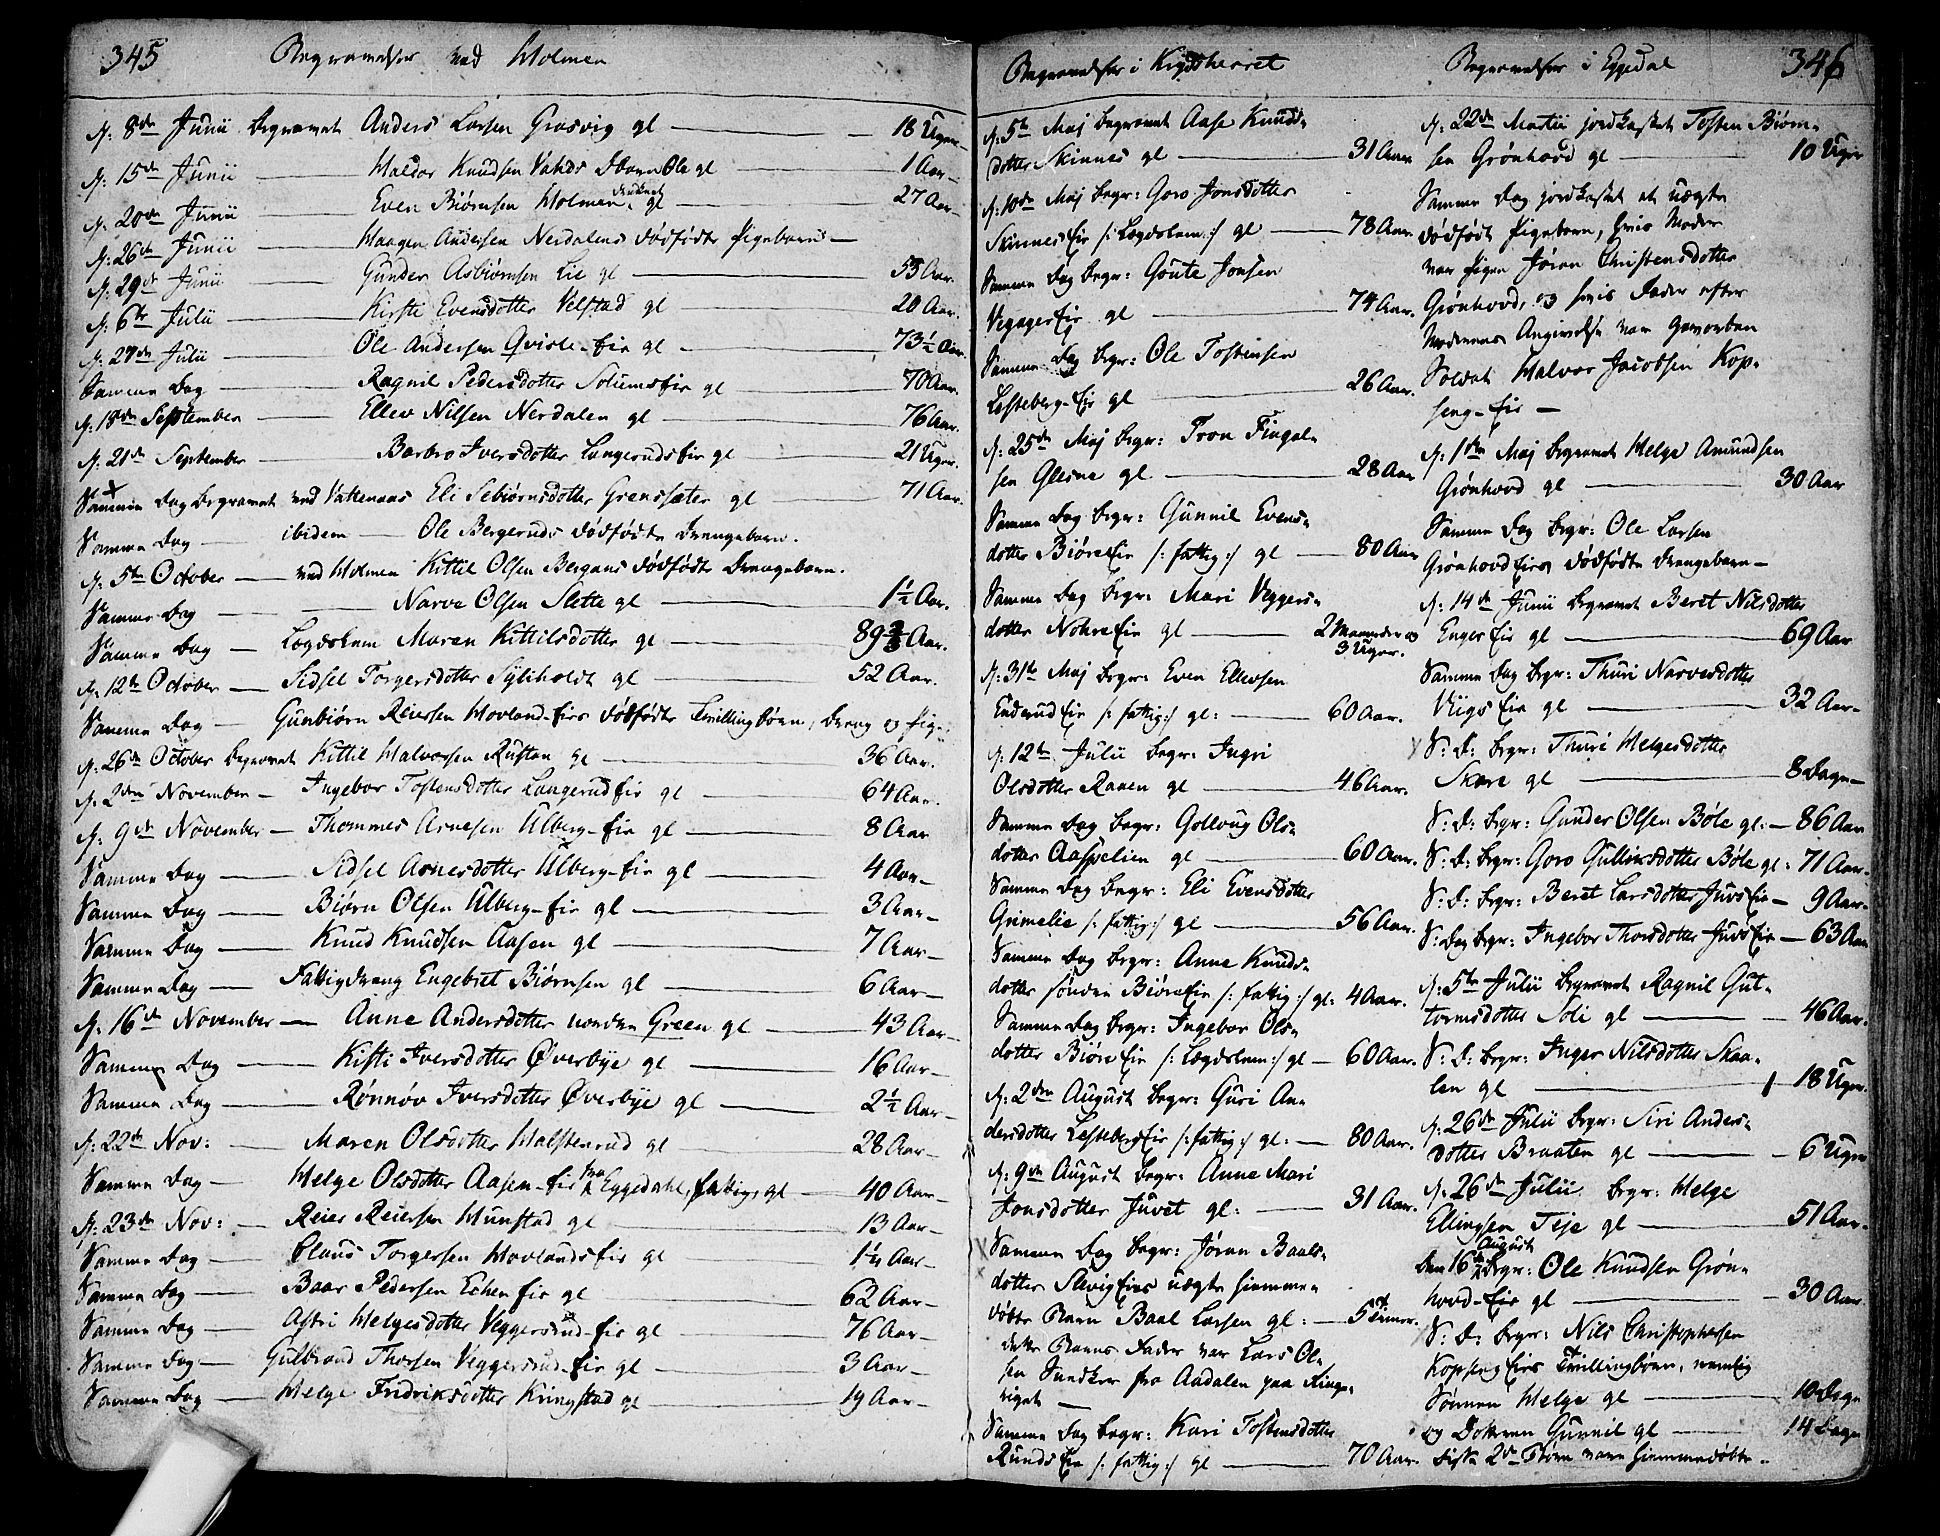 345 Begravelser ved Holmen
d: 8de Junii begravet Anders Larsen Grasvig gl — 18 Uger
d: 15de Junii — Haldor Knudsen gl — 1 Aar
d: 20de Junii — Even Biørnsen Holmen, druknet gl — 27 Aar
d: 26de Junii — Haagen Andersen Nerdalens dødfødte Pigebarn —
d: 29de Junii — Gunder Asbiørnsen Lie gl — 55 Aar.
d: 6te Julii — Kirsti Evensdotter Velstad gl — 20 Aar.
d: 27de Julii — Ole Andersen Qviste-Eie gl — 73½ Aar.
Samme Dag — Ragnil Pedersdotter Solumseie gl — 70 Aar.
d: 18de September — Ellev Nilsen Nerdalen gl — 76 Aar.
d: 21de September — Barbro Iversdotter Langerudseie gl — 21 Uger.
Samme Dag begravet ved Vattenaas Eli Sebiørnsdotter Grensjæter gl — 71 Aar.
Samme Dag — ibidem — Ole Bergeruds dødfødte Drengebarn.
d: 5te October — ved Holmen Kittil Olsen Bergans dødfødte Drengebarn.
Samme Dag — Narve Olsen Slette gl — 1½ Aar.
Samme Dag — Lægdslem Maren Kittilsdotter gl — 89 Aar.
d: 12te October — Sidsel Torgersdotter Sÿliholdt gl — 52 Aar.
Samme Dag — Gunbiørn Reiersen Hovland-Eies dødfødte Tvillingbørn, Dreng og Pige
d: 26de October begravet Kittil Halvorsen Rustan gl — 36 Aar.
d: 2den November — Ingebor Tostensdotter Langerudeie gl — 64 Aar.
d: 9de November — Thommes Arnesen Ulberg-Eie gl — 8 Aar
Samme Dag — Sidsel Arnesdotter Ulberg-Eie gl — 4 Aar
Samme Dag — Biørn Olsen Ulberg-Eie gl — 3 Aar
Samme Dag — Knud Knudsen Aasen gl — 7 Aar
Samme Dag — Fattigdreng Engebret Biørnsen gl — 6 Aar
d: 16de November — Anne Andersdotter nordre Green gl — 43 Aar
Samme Dag — Kisti Iversdotter Øverbÿe gl — 16 Aar
Samme Dag — Rønnøv Iversdotter Øverbÿe gl — 2½ Aar
d: 22de Nov: — Maren Olsdotter Halstenrud gl — 28 Aar
Samme Dag — Helge Olsdotter Aasen-Eie fra Eggedahl, fattig, gl — 40 Aar
d: 23de Nov: — Reier Reiersen Hunstad gl — 13 Aar
Samme Dag — Claus Torgersen Hovlandseie gl — 1¼ Aar
Samme Dag — Baar Pedersen Echen Eie gl — 62 Aar
Samme Dag — Astri Helgesdotter Veggersrud-Eie gl — 76 Aar
Samme Dag — Gulbrand Thorsen Veggersrud-Eie gl — 3 Aar
Samme Dag — Helge Fridriksdotter Kringstad gl — 19 Aar
Begravelser i Krydsherret
d: 5te Maj begravet Aase Knuds-
dotter Skinnes gl — 31 Aar
d: 10de Maj begr: Goro Jonsdotter
Skinneseie /: Lægdslem :/ gl — 78 Aar.
Samme Dag begr: Goute Jonsen
gl — 74 Aar.
Samme Dag begr: Ole Tostensen
Lesteberg-Eie gl — 26 Aar.
d: 25de Maj begr: Tron Fingal-
sen Glesne gl — 28 Aar
Samme Dag begr: Gunnil Evens-
dotter Biøreeie /: fattig :/ gl — 80 Aar
Samme Dag begr: Mari Veggers-
dotter Nohreeie gl — 2 Maaneder og
3 Uger.
d: 31te Maj begr: Even Ellevsen
Enderudeie /: fattig :/ gl: — 60 Aar.
d: 12te Julii begr: Ingri
Olsdotter Raaen gl — 46 Aar.
Samme Dag begr: Gollaug Ols-
dotter Aaspelien gl — 60 Aar.
Samme Dag begr: Eli Evensdotter
Grimelie /: fattig :/ gl — 56 Aar.
Samme Dag begr: Anne Knuds-
dotter søndre Biøreeie /: fattig :/ gl: 4 Aar.
Samme Dag begr: Ingebor Ols-
dotter Biøre Eie /: Lægdslem :/ gl — 60 Aar.
d: 2den August begr: Guri An-
dersdotter Lestebergeie /: fattig :/ gl: — 80 Aar.
d: 9de August begr: Anne Mari
Jonsdotter Juvet gl: — 31 Aar.
Samme Dag begr: Jøran Baals-
dotter Slevigeies uægte hiemme-
døbte Barn Baal Larsen gl: — 5
dette Barns Fader var Lars Ol-
sen fra Aadalen paa Ringe-
riget —
Samme Dag begr: Kari Tostensdotter
Rundseie /: fattig :/ gl — 70 Aar.
Begravelser i Eggedal 346
d: 22de Martii jordkastet Tosten Biørn-
sen Grønhovd gl — 10 Uger
Samme Dag jordkastet et uægte
dødfødt Pigebarn, hvis Moder
var Pigen Jøran Christensdotter
Grønhovd, og hvis Fader efter
Moderens Angivelse var gevorben
Soldat Halvor Jacobsen Kop-
seng-Eie —
d: 1ste Maj begravet Helge Amundsen
Grønhovd gl — 30 Aar
Samme Dag begr: Ole Larsen
Grønhovdeies dødfødte Drengebarn —
d: 14de Junii begravet Beret Nilsdotter
Enger Eie gl — 69 Aar
Samme Dag begr: Thuri Narvesdotter
Viigs Eie gl — 32 Aar
S: D: begr: Thuri Helgesdotter
Skare gl — 8 Dage
S: D: begr: Gunder Olsen Bøle gl: — 86 Aar
S: D: begr: Goro Gulliksdotter Bøle gl: 71 Aar.
S: D: begr: Beret Larsdotter Juvseie — 9 Aar.
S: Dag begr: Ingebor Thorsdotter Juvseie — 63 Aar
d: 5te Julii begravet Ragnil Gut-
tormsdotter Soli gl — 46 Aar.
S: D: begr: Inger Nilsdotter Skaa-
len gl — 18 Uger.
d: 26de Julii begr: Siri Anders-
dotter Braaten gl — 6 Uger
d: 26de Julii begr: Helge
Ellingsen Teje gl — 51 Aar.
den 16de August begr: Ole Knudsen Grøn-
hovd-Eie gl — 30 Aar.
S: D: begr: Nils Christophersen
Kopseng Eies Tvillingbørn, nemlig
Sønnen Helge gl — 10 Dage
og Dotteren Gunnil gl — 14 Dage
disse 2de Børn vare hiemmedøbte.